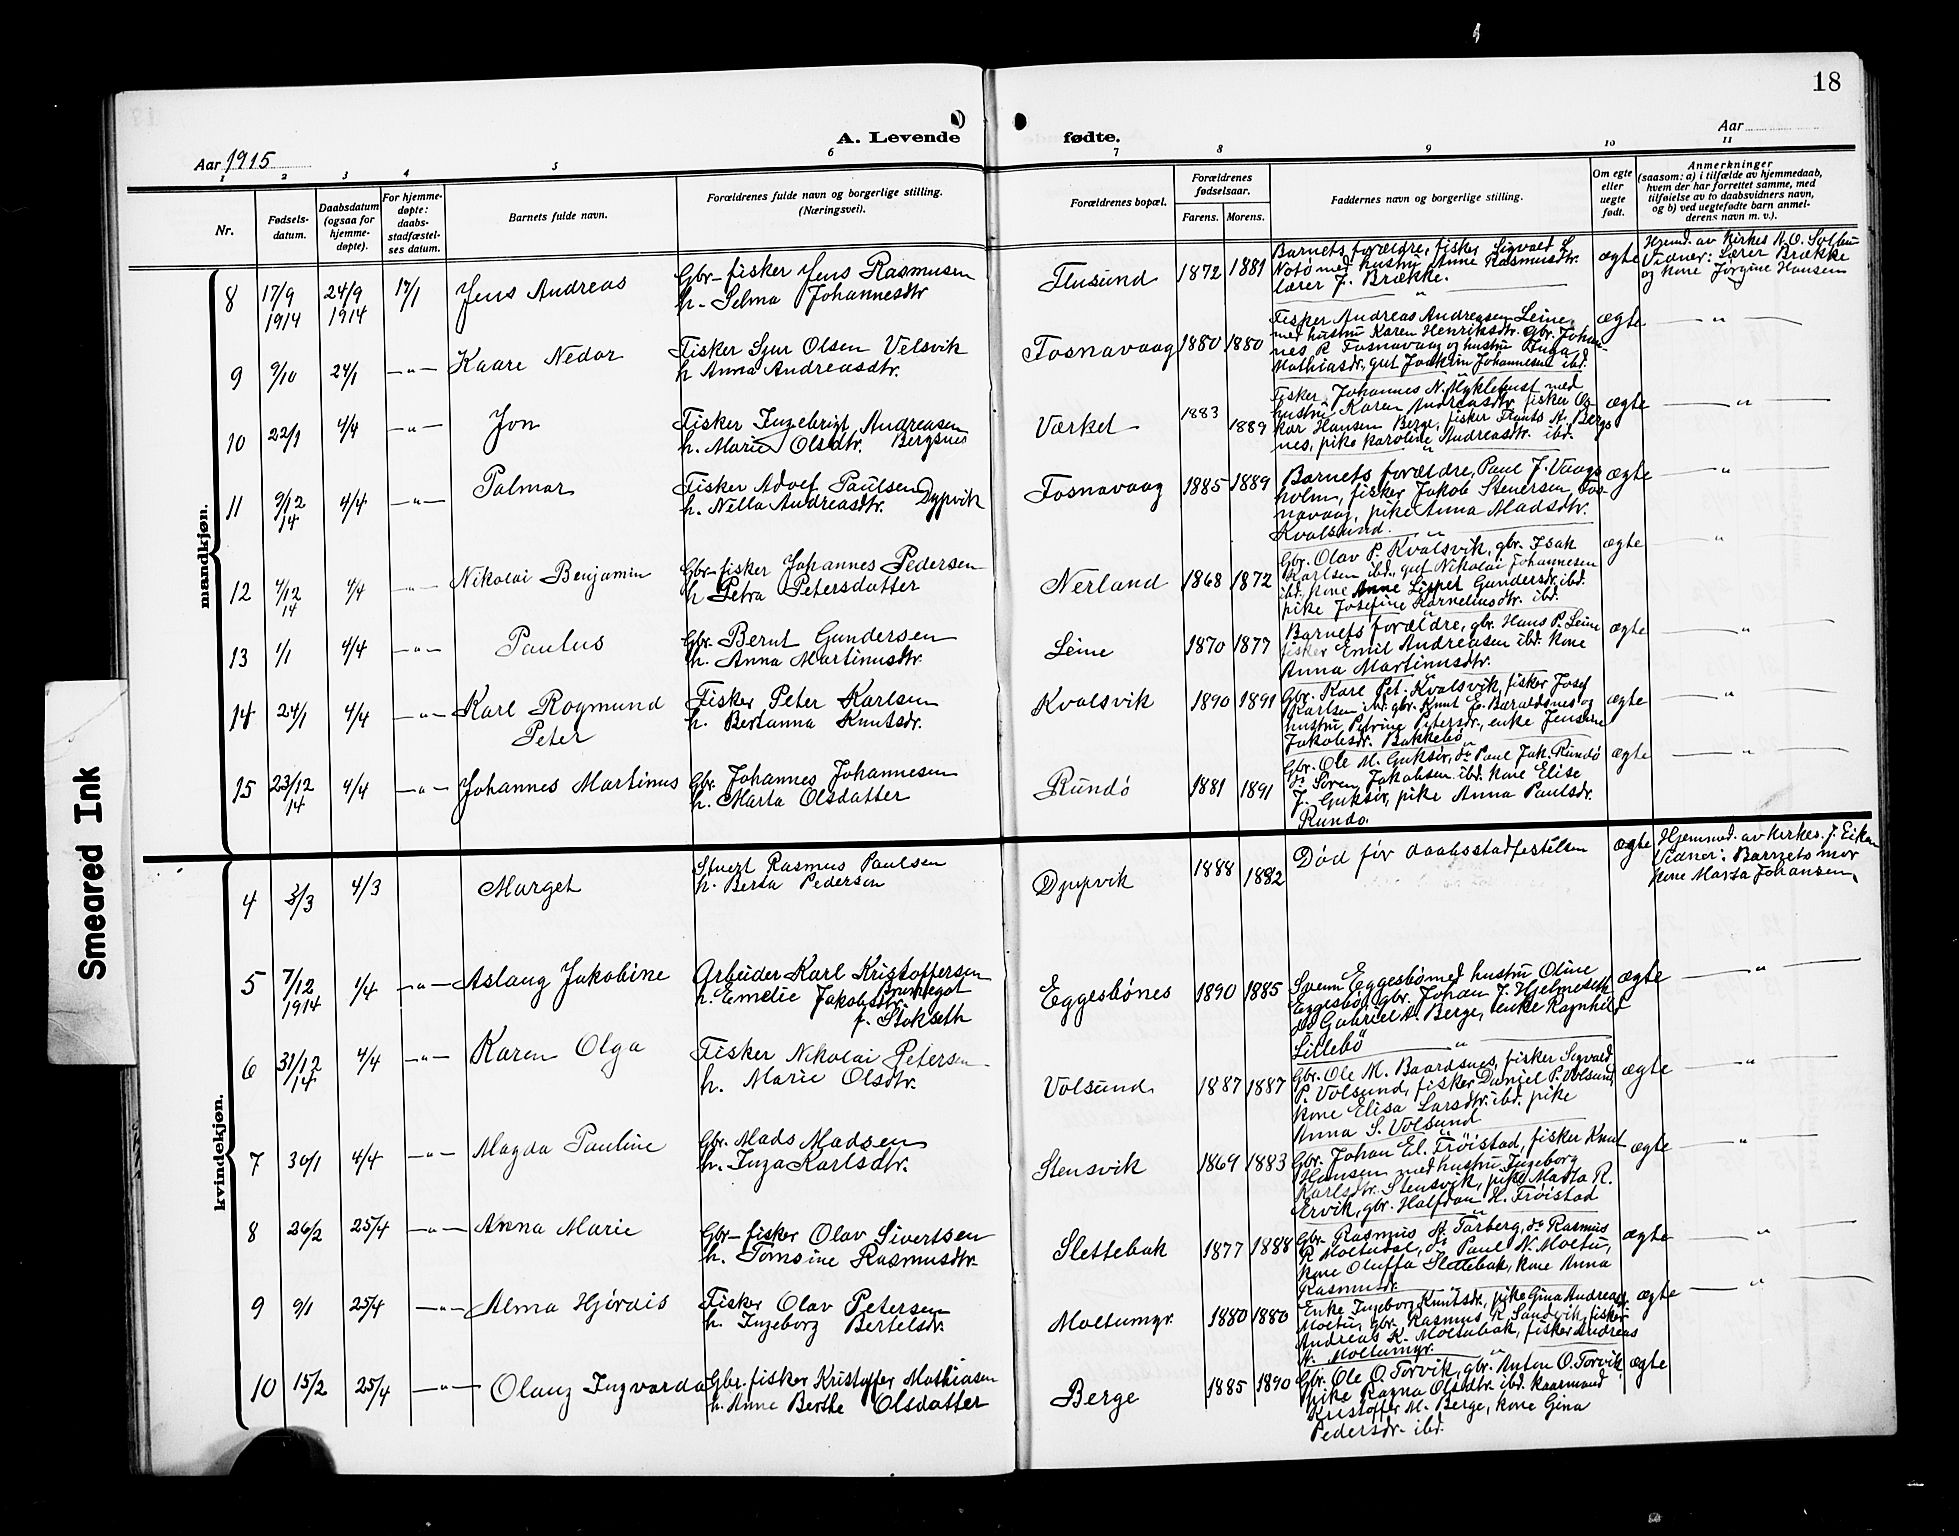 18
A. Levende fødte.
Aar 1915
Aar
1 2 3 4 5 6 7 8 9 10 11
Nr.
Fødsels-
datum.
Daabsdatum
(ogsaa for
hjemme-
døpte).
For hjemme-
døpte:
daabs-
stadfæstel-
ses datum.
Barnets fulde navn.
Forældrenes fulde navn og borgerlige stilling.
(Næringsvei).
Forældrenes bopæl.
Forældrenes
fødselsaar.
Farens. Morens.
Faddernes navn og borgerlige stilling.
Om egte
eller
uegte
født.
Anmerkninger
(saasom: a) i tilfælde av hjemmedaab,
hvem der har forrettet samme, med
tilføielse av to daabsvidners navn,
og b) ved uegtefødte barn anmel-
derens navn m. v.).
mandkjøn.
8 17/9 1914 24/9 1914 17/1 Jens Andreas
Gbr-fisker Jens Rasmusen
h. Selma Johannesdtr
Flusund 1872 1881
Barnets forældre, fisker Sigvald L.
Notø med hustru Anne Rasmusdtr.
lærer J. Brække.
ægte
Hjemd. av kirkes. A. O.
Vidner: Lærer Brække
og kone Jørgine Hansen
9 9/10 24/1 -"- Kaare Nedor
Fisker Sjur Olsen Velsvik
h Anna Andreasdtr.
Fosnavaag 1880 1880
Fisker Andreas Andreasen Leine,
med hustru Karen Henriksdtr. gbr. Johan-
nes P. Fosnavaag og hustru Inga
Mathiasdr, gut Joakim Johannesen ibd.
ægte -"-
10 22/1 4/4 -"- Jon
Fisker Ingebrigt Andreasen
h. Marie Olsdtr. Bergsnes
Værket 1883 1889
Fisker Johannes N. Myklebust med
hustru Karen Andreasdtr. fisker Os-
kar Hansen Berge, fisker Frants A. Bergs
nes, pike Karoline Andreasdtr. ibd.
ægte -"-
11 9/12 14 4/4 -"- Palmar
Fisker Adolf Paulsen
h. Nella Andreasdtr. Dypvik
Fosnavaag 1885 1889
Barnets forældre, Paul J. Vaags
holm, fisker Jakob Steversen Fos-
navaag, pike Anna Madsdtr.
Kvalsund.
ægte -"-
12 4/12 14 4/4 -"- Nikolai Benjamin
Gbr-fisker Johannes Pedersen
h Petra Petersdatter
Nerland 1868 1872
Gbr. Olav P. Kvalsvik, gbr. Isak
Karlsen ibd., gut Nikolai Johannesen
ibd, kone Anne Lisper Gundersdr. ibd.
pike Josefine Korneliusdtr. ibd.
ægte -"-
13 1/1 4/4 -"- Paulus
Gbr. Bernt Gundersen
h. Anna Martinusdtr.
Leine 1870 1877
Barnets forældre, gbr. Hans P. Leine
fisker Emil Andreasen ibd. kone
Anna Martinusdtr.
ægte -"-
14 24/1 4/4 -"- Karl Rogmund
Peter
Fisker Peter Karlsen
h. Bertanna Knutsdr.
Kvalsvik 1890 1891
Gbr. Karl Pet. Kvalsvik, fisker Josef
Karlsen ibd. gbr. Knut E. Bæraldsnes og
hustru Petrine Petersdr., enke Jensine
Jakobsdr. Bakkebø
ægte -"-
15 23/12 14 4/4 -"- Johannes Martinus
Gbr. Johannes Johannesen
h. Marta Olsdatter
Rundø 1881 1891
Gbr. Ole M. Guksør, do Paul Jak. Rundø
do Søren Jakobsen ibd. kone Elise
J. Guksør, pike Anna Paulsdr.
Rundø.
ægte -"-
kvindekjøn.
4 3/3 4/3 Marget
Stuert Rasmus Paulsen
h. Berta Pedersen
Dypvik 1888 1882
Død før daabsstadfestelsen
ægte
Hjemmd. av kirkes. J. Eikrem
Vidner: Barnets mor
kone Marta Johansen.
5 7/12 1914 1/4 -"- Aslaug Jakobine
Arbeider Karl Kristoffersen
h. Emelie Jakobsdtr. Brunegot
f. Stokseth
Eggesbønes 1890 1885
Svenn Eggesbø med hustru Oline
Eggesbø, gbr. Johan J. Hjelmeseth
do Gabriel A. Berge, enke Ragnhild
Lillebø
ægte -"-
6 31/12 14 4/4 -"- Karen Olga
Fisker Nikolai Petersen
h. Marie Olsdtr.
Volsund 1887 1887
Gbr. Ole M. Baardsnes, fisker Sigvald
P. Volsund, fisker Daniel P. Volsund,
kone Elisa Larsdtr. ibd. pike
Anna S. Volsund
ægte -"-
7 30/1 4/4 -"- Magda Pauline
Gbr. Mads Madsen
h. Inga Karlsdtr.
Stensvik 1869 1883
Gbr. Johan El. Frøistad, fisker Knut
Hansen med hustru Ingeborg
Karlsdtr. Stensvik, pike Marta R.
Ervik, gbr. Halfdan H. Frøistad
ægte -"-
8 26/2 25/4 -"- Anna Marie
Gbr-fisker Olav Sivertsen
h. Tomsine Rasmusdtr.
Slettebak 1877 1888
Gbr. Rasmus A. Tarberg, do Rasmus
R Moltudal, do Paul N. Moltu,
kone Oluffa Slettebak, kone Anna
Rasmusdr.
ægte -"-
9 9/1 25/4 -"- Alma Hjørdis
Fisker Olav Petersen
h. Ingeborg Bertelsdr.
Moltumyr. 1880 1880
Enke Ingeborg Knutsdr, pike Gina Andreasdr.
Moltu, gbr. Rasmus R. Sandvik, fisker
Andreas K. Moltubak, fisker Andreas
A. Moltumyr.
ægte -"-
10 15/2 25/4 -"- Olaug Ingvarda
Gbr. fisker Kristoffer Mathiasen
h. Anne Berthe Olsdatter
Berge 1885 1890
Gbr. Ole O. Torvik, gbr. Anton O. Torvik
pike Ragna Olsdtr. ibd. kaarmand
Kristoffer M. Berge, kone Gina
Pedersdr. ibd.
ægte
Smeared Ink